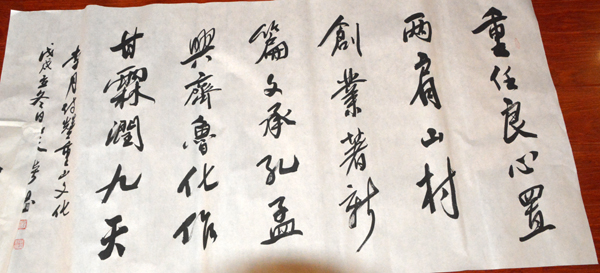 重任良心置
两肩山村
創業著新
篇文承孔孟
興齊魯化作
甘霖潤九天
李月付慧重山文化
戊戌立冬日